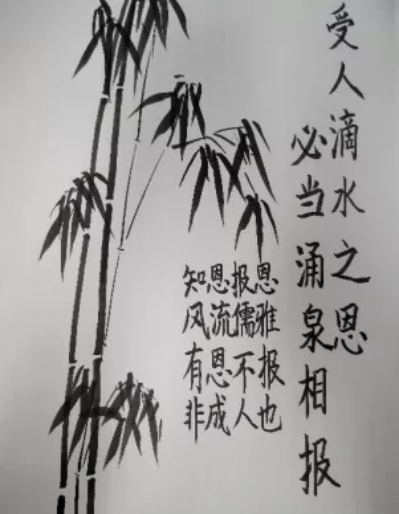 受人滴水之恩
必当涌泉相报
知恩报恩
风流儒雅
有恩不报
非成人也